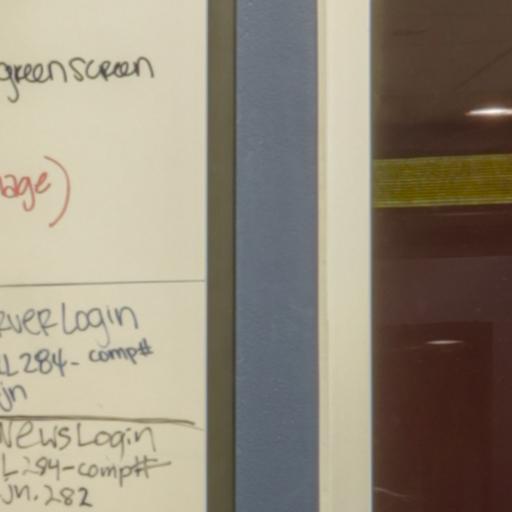 greenscreen
age)
RVER Login
L284- comp#
jn
News Login
L284-comp#
jn.282